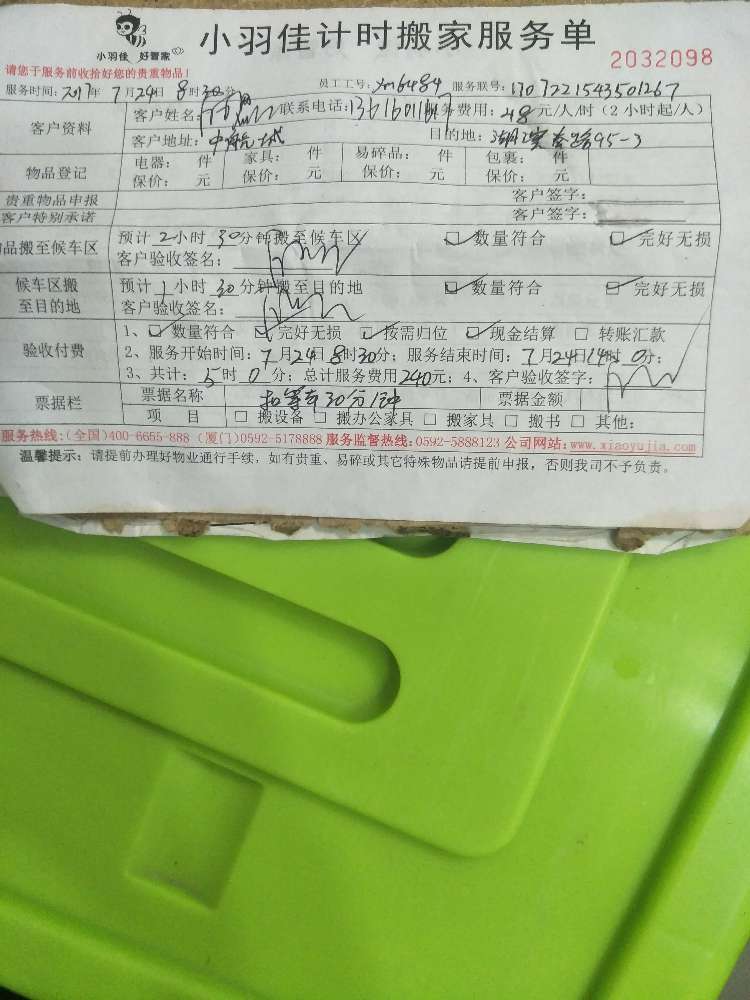 小羽佳 好管家
小羽佳计时搬家服务单
2032098
请您于服务前收拾好您的贵重物品!
服务时间: 2017年 7月24日 8时30分 员工工号: xm6484 服务联号: 13072215435 01267
客户资料 客户姓名: 联系电话: 服务费用: 48元/人/时(2小时起/人)
客户地址: 中航 城 目的地: 湖滨 路95-3
物品登记 电器: 件 家具: 件 易碎品: 件 包裹: 件
保价: 元 保价: 元 保价: 元 保价: 元
贵重物品申报 客户签字:
客户特别承诺 客户签字:
品搬至候车区 预计2小时30分钟搬至候车区 数量符合 完好无损
客户验收签名:
候车区搬 预计1小时30分钟搬至目的地 数量符合 完好无损
至目的地 客户验收签名:
验收付费 1、 数量符合 完好无损 按需归位 现金结算 转账汇款
2、服务开始时间: 7月24日8时30分; 服务结束时间: 7月24日14时0分;
3、共计: 5时0分; 总计服务费用240元; 4、客户验收签字:
票据栏 票据名称 扣等车30分钟 票据金额
项 目 搬设备 搬办公家具 搬家具 搬书 其他:
服务热线:(全国)400-6655-888 (厦门)0592-5178888 服务监督热线:0592-5888123 公司网站:www.xiaoyujia.com
温馨提示: 请提前办理好物业通行手续, 如有贵重、易碎或其它特殊物品请提前申报, 否则我司不予负责。